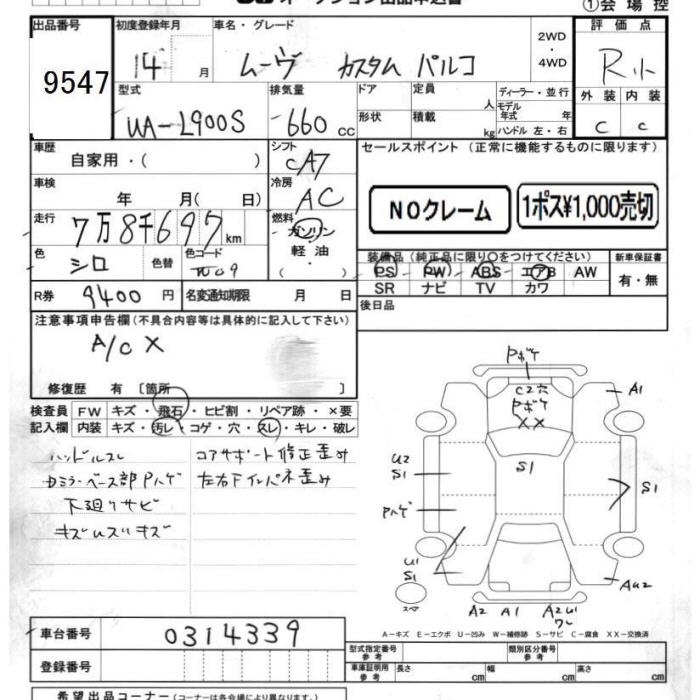 オークション出品申込書
①会場控
出品番号 9547
初度登録年月 14 月
車名・グレード ムーヴ カスタム パルコ
2WD
・
4WD
評価点 R小
外装 C 内装 c
型式 UA-L900S
排気量 660 cc
ドア
形状
定員 人
積載 kg
ディーラー・並行
モデル年式 年
ハンドル 左・右
車歴 自家用・( )
シフト CA7
車検 年 月( 日)
冷房 AC
走行 7万8千697 km
燃料 ガソリン
軽油
・( )
色 シロ 色替 色コード
R券 9400 円
名変通知期限 月 日
セールスポイント (正常に機能するものに限ります)
NOクレーム
1ポス¥1,000売切
装備品 (純正品に限り○をつけてください)
新車保証書
PS PW ABS エアB AW
SR ナビ TV カワ
有・無
後日品
注意事項申告欄 (不具合内容等は具体的に記入して下さい)
A/C X
修復歴 有 〔箇所 〕
検査員 記入欄
FW キズ・飛石・ヒビ割・リペア跡・×要
内装 キズ・汚レ・コゲ・穴・スレ・キレ・破レ
ハンドルスレ
コアサポート修正歪み
左右下インパネ歪み
下廻りサビ
Pボケ
C2穴
Pボケ
XX
A1
S1
U2
S1
Pハゲ
S1
U1
S1
スペア
A2 A1 A2U1
ワレ
AU2
A-キズ E-エクボ U-凹み W-補修跡 S-サビ C-腐食 XX-交換済
車台番号 0314339
登録番号
型式指定番号 参考
類別区分番号 参考
車庫証明用 参考
長さ cm 幅 cm 高さ cm
希望出品コーナー (コーナーは各会場により異なります)